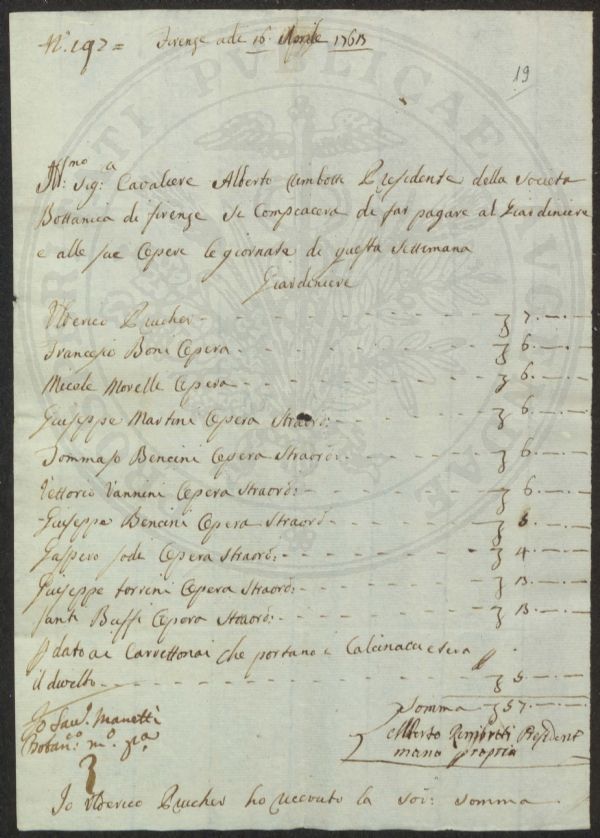 N.º 192 = Firenze adi 16 Aprile 1768
19
Ill:mo Sig:a Cavaliere Alberto Rimbotti Presidente della Societa
Bottanica di firenze si Compiacera di far pagare al Giardiniere
e alle sue Opere le giornate di questa Settimana
Giardiniere
Ulderico Prucher - - - 7. - . -
Francesco Boni Opera - - - 6. - . -
Micole Morelli Opera - - - 6. - . -
Giuseppe Martini Opera Straord: 6. - . -
Tommaso Bencini Opera Straord: - - - 6. - . -
Vettorio Vannini Opera Straord: - - - 6. - . -
Giuseppe Bencini Opera Straord - - - . - . -
Gaspero Sodi Opera Straord: - - - 4. - . -
Giuseppe Torrini Opera Straord: - - - 3. - . -
Santi Buffi Opera Straord: - - - 3. - . -
P dato ai Carrettonai che portano i Calcinacci e
il - - - 5. - . -
Somma - 57. - . -
Io Sav.r Manetti
Botan.co m.o p.a
Alberto Rimbotti President
mano propria
Io Ulderico Prucher ho riceuto la Sod: Somma
PUBLICAE